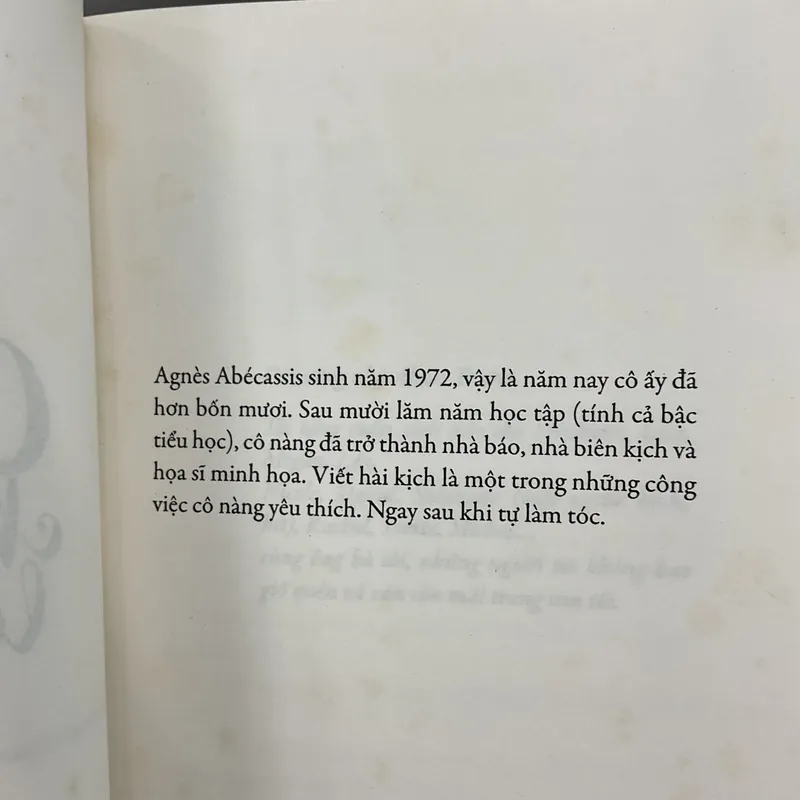 Agnès Abécassis sinh năm 1972, vậy là năm nay cô ấy đã
hơn bốn mươi. Sau mười lăm năm học tập (tính cả bậc
tiểu học), cô nàng đã trở thành nhà báo, nhà biên kịch và
họa sĩ minh họa. Viết hài kịch là một trong những công
việc cô nàng yêu thích. Ngay sau khi tự làm tóc.